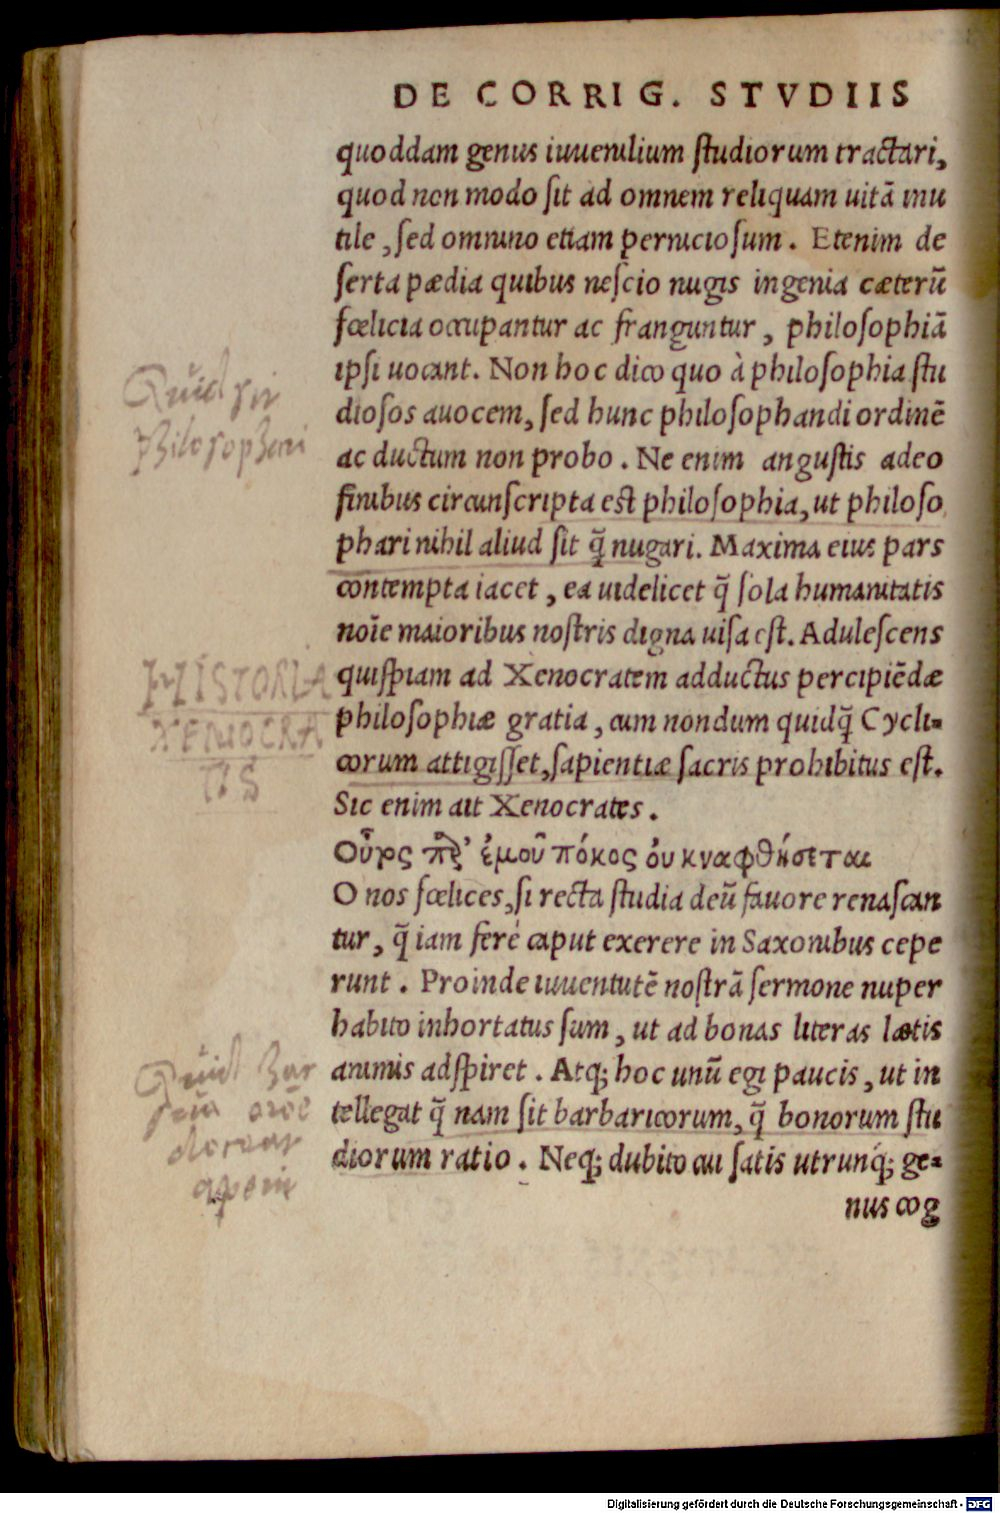 DE CORRIG. STVDIIS
quoddam genus iuuenilium ſtudiorum tractari,
quod non modo ſit ad omnem reliquam uitā inu
tile, ſed omnino etiam pernicioſum. Etenim de
ſerta pædia quibus neſcio nugis ingenia cæterū
fœlicia occupantur ac franguntur, philoſophiā
ipſi uocant. Non hoc dico quo à philoſophia ſtu
dioſos auocem, ſed hunc philoſophandi ordinē
ac ductum non probo. Ne enim anguſtis adeo
finibus circunſcripta eſt philoſophia, ut philoſo
phari nihil aliud ſit q̃ nugari. Maxima eius pars
contempta iacet, ea uidelicet q̃ ſola humanitatis
noīe maioribus noſtris digna uiſa eſt. Aduleſcens
quiſpiam ad Xenocratem adductus percipiēdæ
philoſophiæ gratia, cum nondum quidq̃ Cycli-
corum attigiſſet, ſapientiæ ſacris prohibitus eſt.
Sic enim ait Xenocrates.
Οὖρς πξ’ ἐμοῦ πόκος ὀυ κναφθήσεται
O nos fœlices, ſi recta ſtudia deū fauore renaſcan
tur, q̃ iam ferè caput exerere in Saxonibus cepe
runt. Proinde iuuentutē noſtrā ſermone nuper
habito inhortatus ſum, ut ad bonas literas lætis
animis adſpiret. Atq; hoc unū egi paucis, ut in
tellegat q̃ nam ſit barbaricorum, q̃ bonorum ſtu
diorum ratio. Neq; dubito cui ſatis utrunq́; ge-
nus cog
Quid ſit
philoſophari
HISTORIA
XENOCRA
TIS
Quid
Digitalisierung gefördert durch die Deutsche Forschungsgemeinschaft - DFG